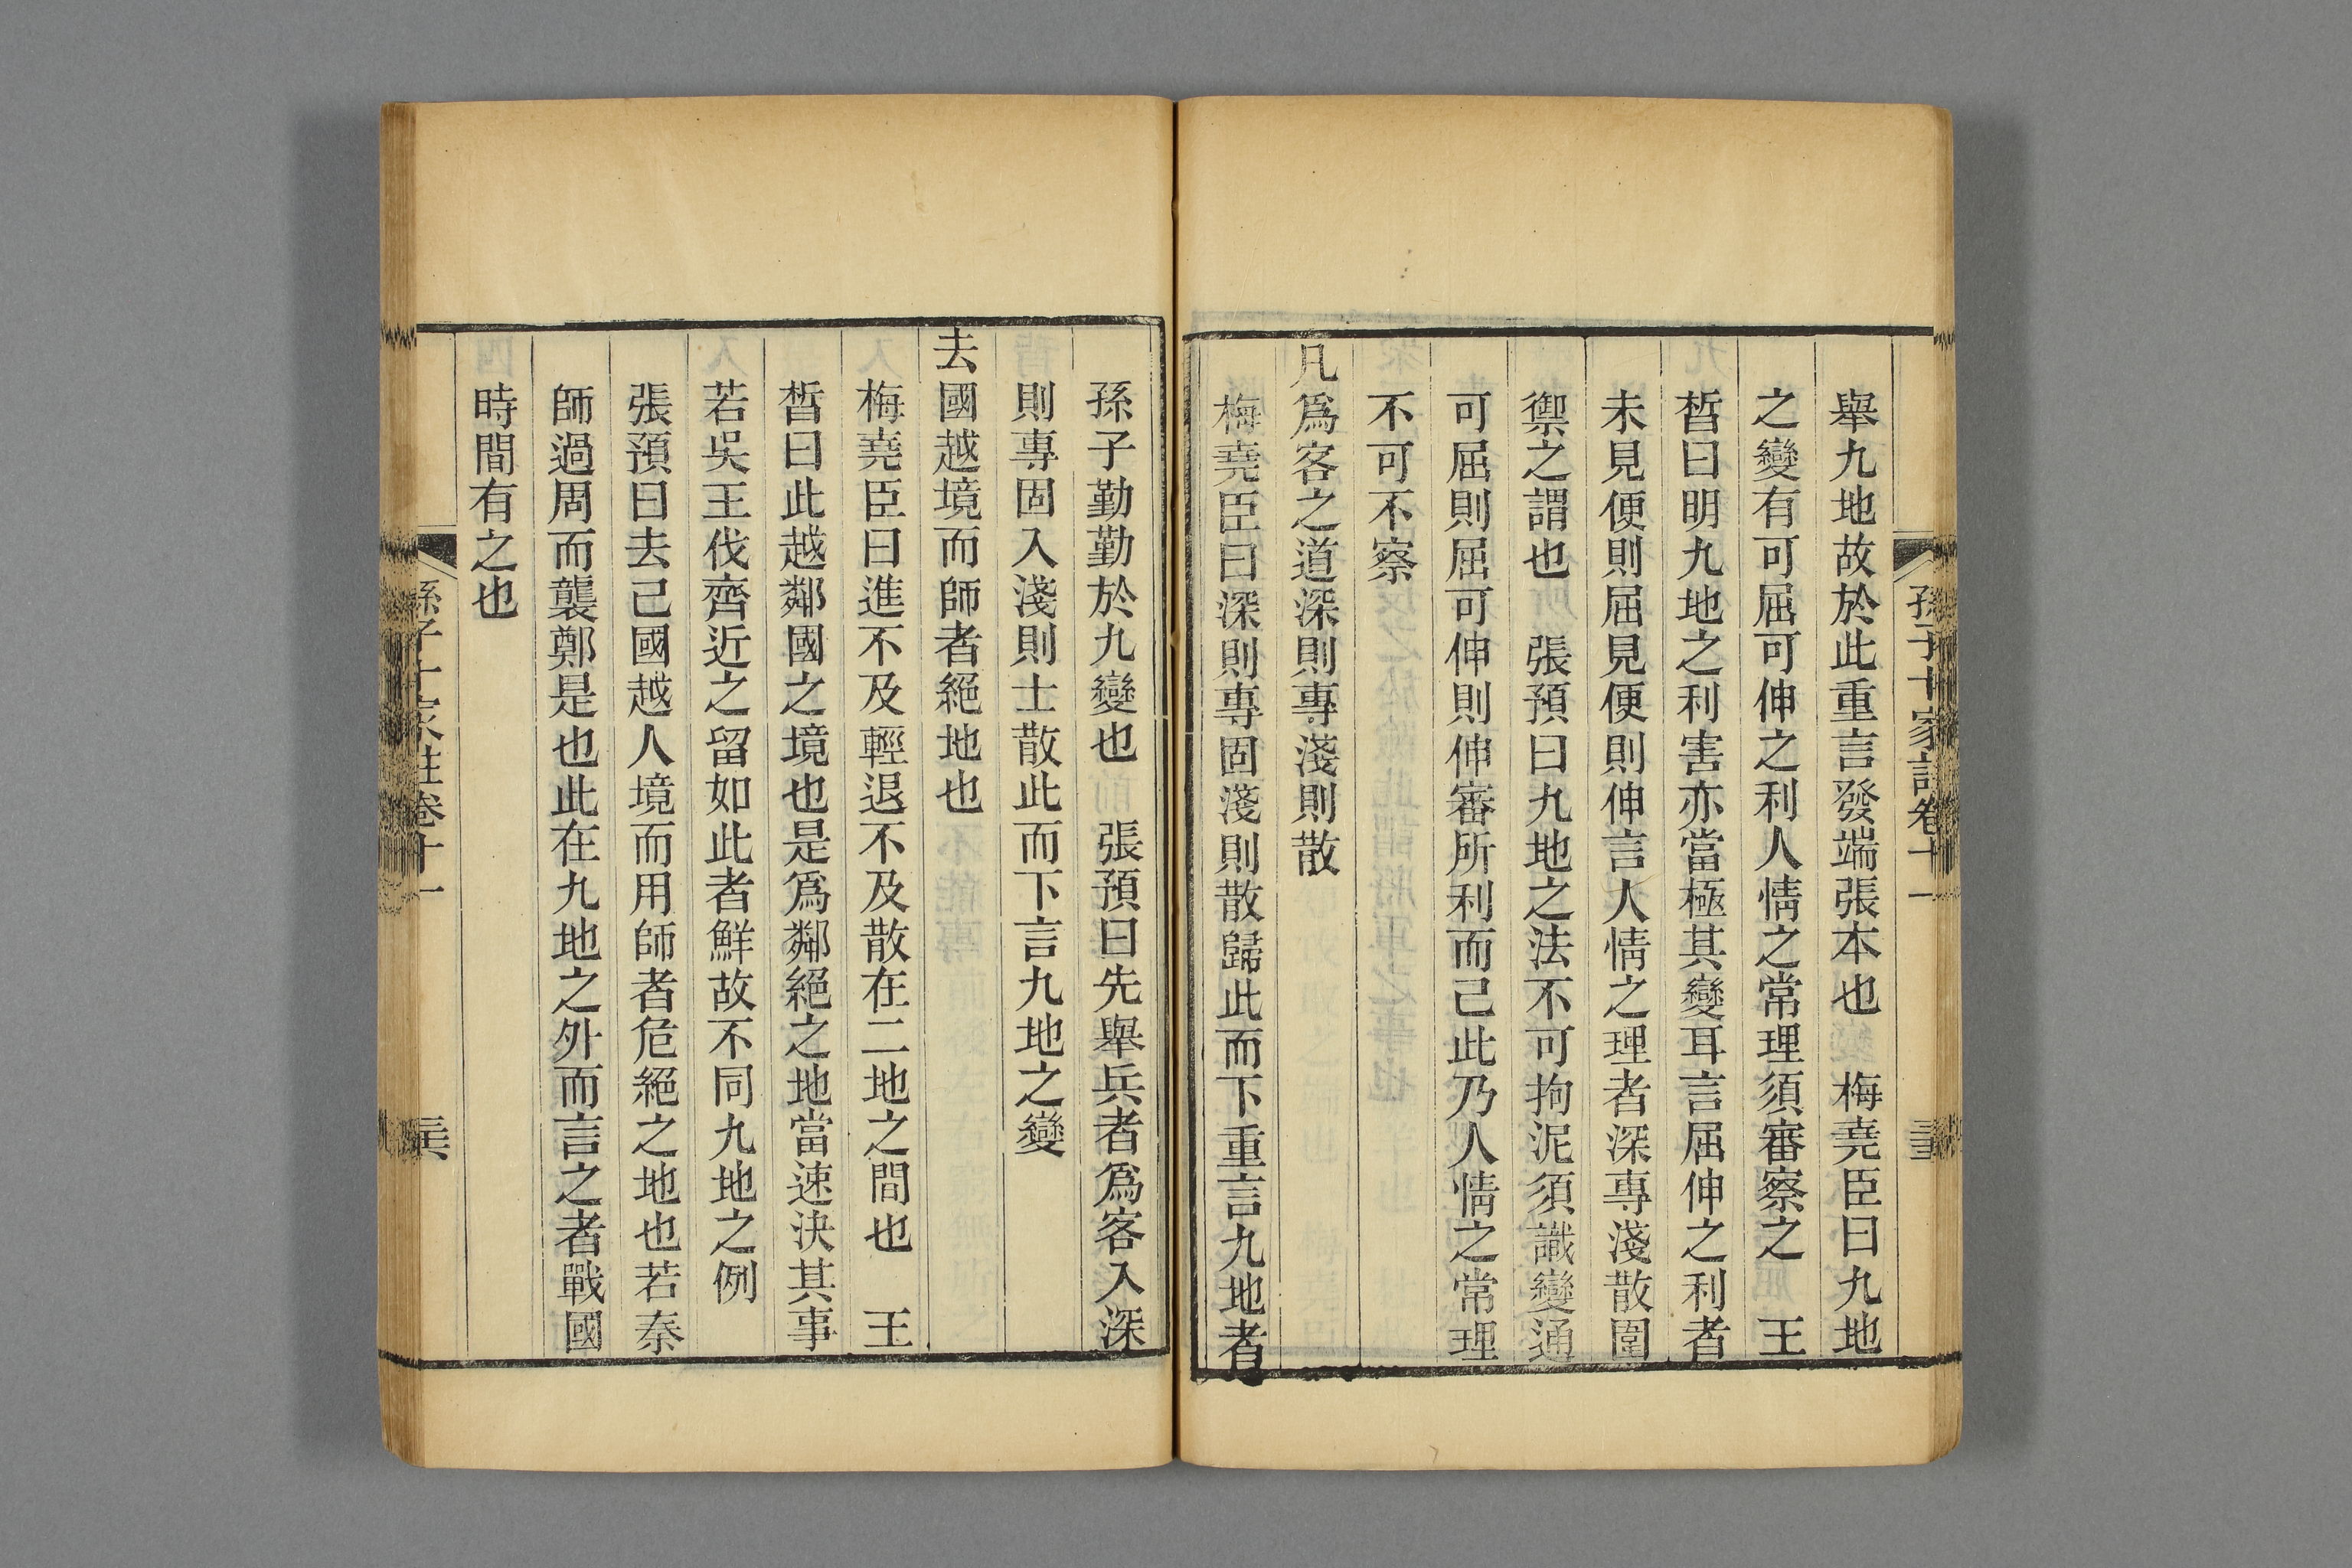 孫子十家註卷十一
舉九地故於此重言發端張本也　梅堯臣曰九地
之變有可屈可伸之利人情之常理須審察之　王
晳曰明九地之利害亦當極其變耳言屈伸之利者
未見便則屈見便則伸言人情之理者深專淺散圍
禦之謂也　張預曰九地之法不可拘泥須識變通
可屈則屈可伸則伸審所利而已此乃人情之常理
不可不察
凡爲客之道深則專淺則散
梅堯臣曰深則專固淺則散歸此而下重言九地者
孫子勤勤於九變也　張預曰先舉兵者爲客入深
則專固入淺則士散此而下言九地之變
去國越境而師者絕地也
梅堯臣曰進不及輕退不及散在二地之間也　王
晳曰此越鄰國之境也是爲鄰絕之地當速決其事
若吳王伐齊近之留如此者鮮故不同九地之例
張預曰去己國越人境而用師者危絕之地也若秦
師過周而襲鄭是也此在九地之外而言之者戰國
時間有之也
孫子十家註卷十一